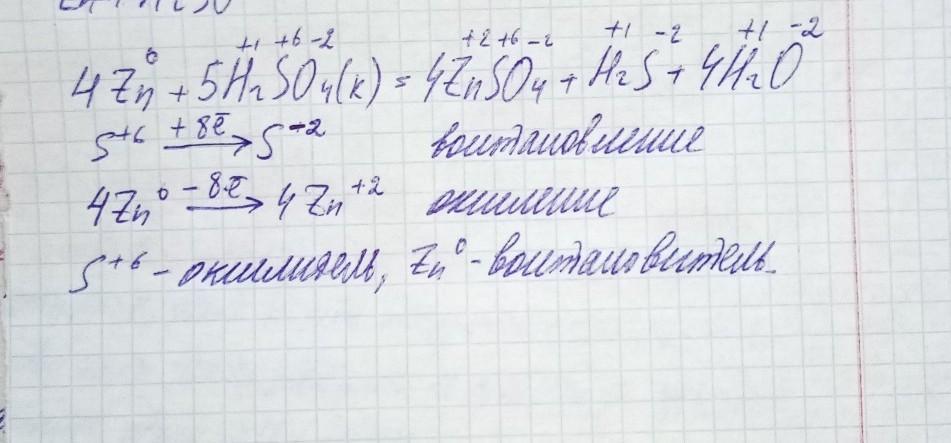 4Zn⁰ + 5H₂⁺¹S⁺⁶O₄⁻²(к) = 4Zn⁺²S⁺⁶O₄⁻² + H₂⁺¹S⁻² + 4H₂⁺¹O⁻²
S⁺⁶ +8ē → S⁻² восстановление
4Zn⁰ −8ē → 4Zn⁺² окисление
S⁺⁶ - окислитель, Zn⁰ - восстановитель.